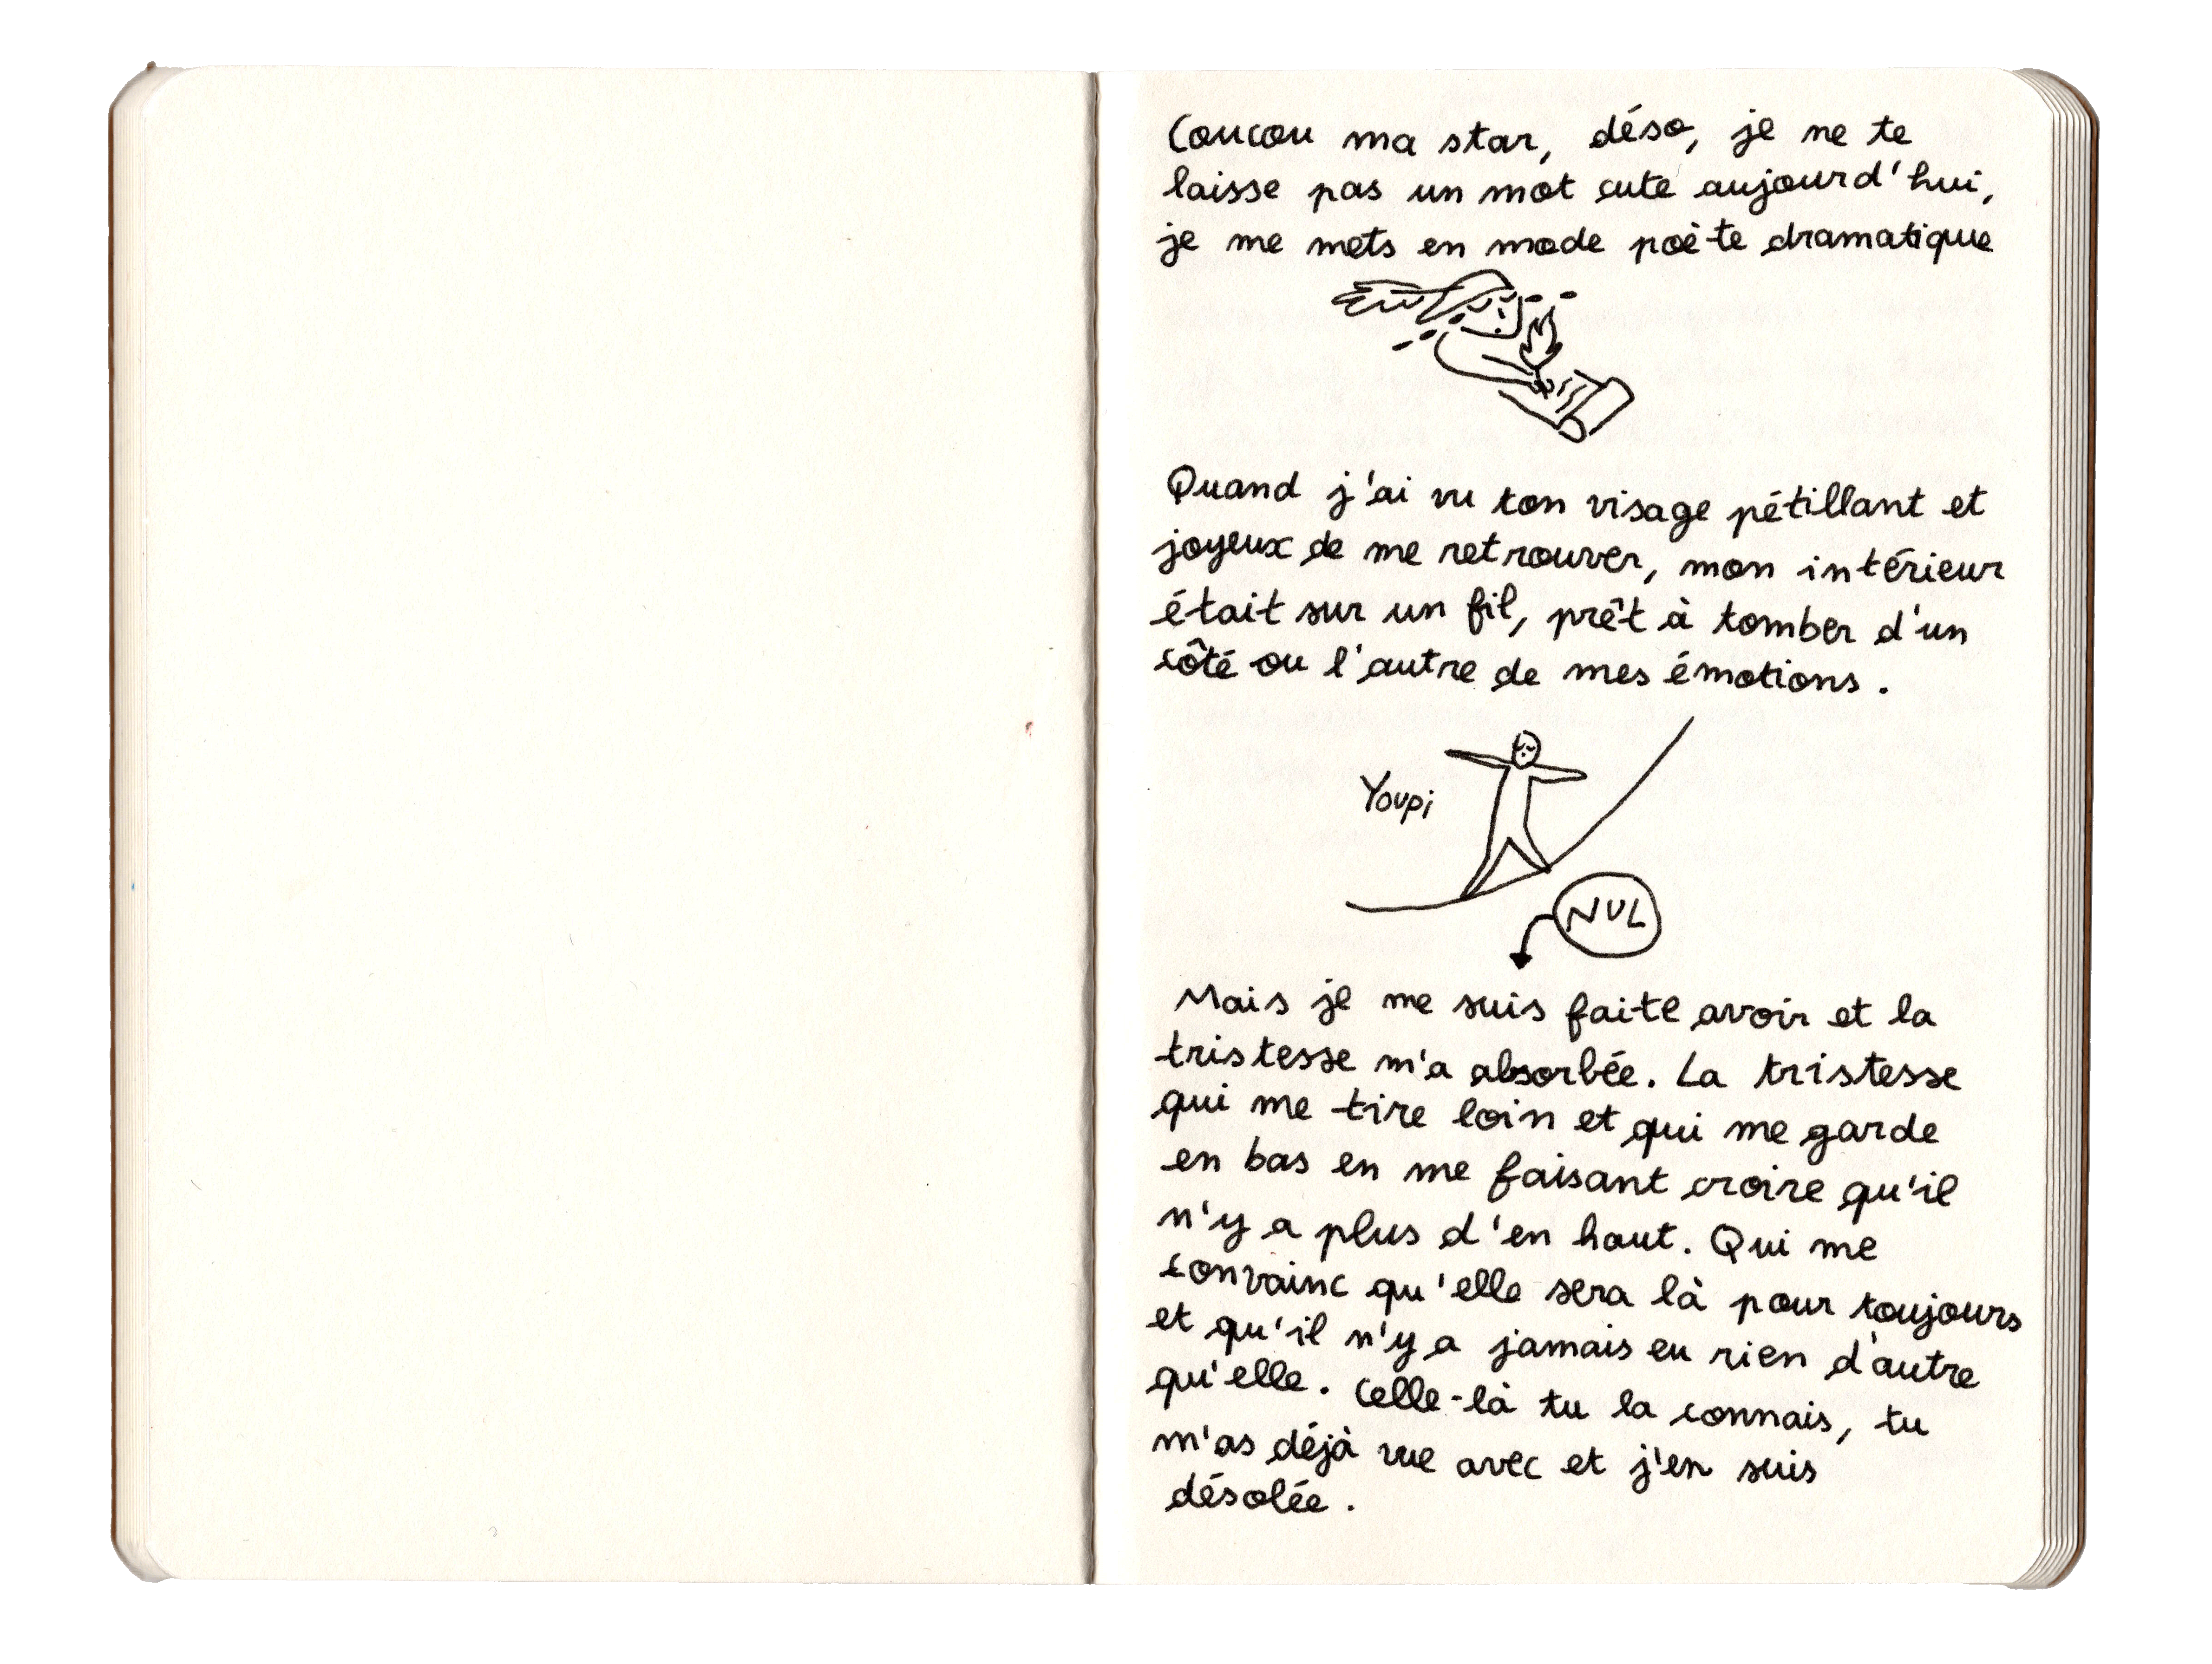 Coucou ma star, déso, je ne te
laisse pas un mot cute aujourd'hui,
je me mets en mode poète dramatique
Quand j'ai vu ton visage pétillant et
joyeux de me retrouver, mon intérieur
était sur un fil, prêt à tomber d'un
côté ou l'autre de mes émotions.
Youpi
NUL
Mais je me suis faite avoir et la
tristesse m'a absorbée. La tristesse
qui me tire loin et qui me garde
en bas en me faisant croire qu'il
n'y a plus d'en haut. Qui me
convainc qu'elle sera là pour toujours
et qu'il n'y a jamais eu rien d'autre
qu'elle. Celle-là tu la connais, tu
m'as déjà vue avec et j'en suis
désolée.